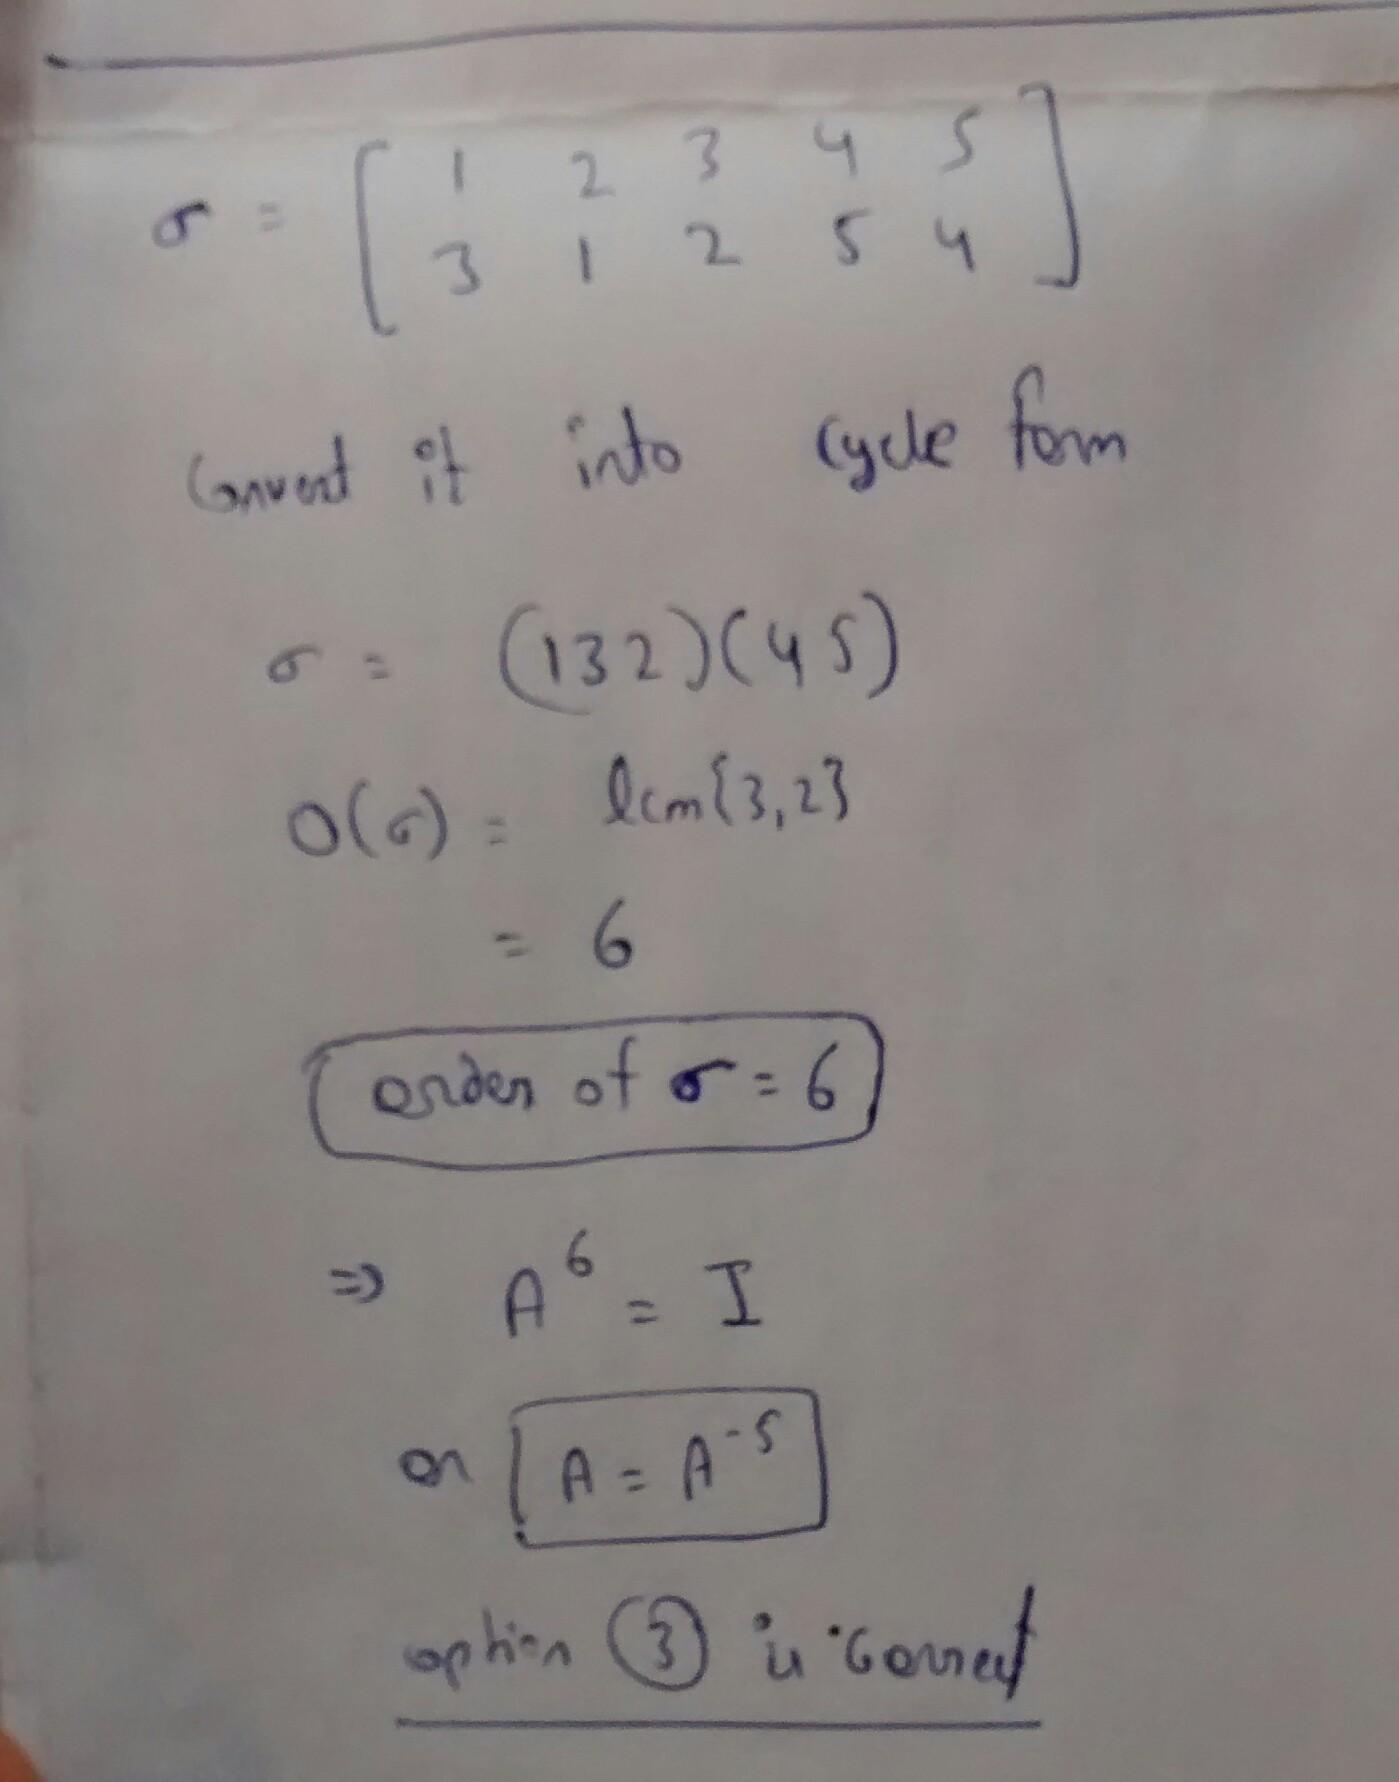 σ = [ 1 2 3 4 5
3 1 2 5 4 ]
Convert it into cycle form
σ = (132)(45)
O(σ) = lcm{3,2}
= 6
order of σ = 6
⇒ A⁶ = I
or A = A⁻⁵
option ③ is correct